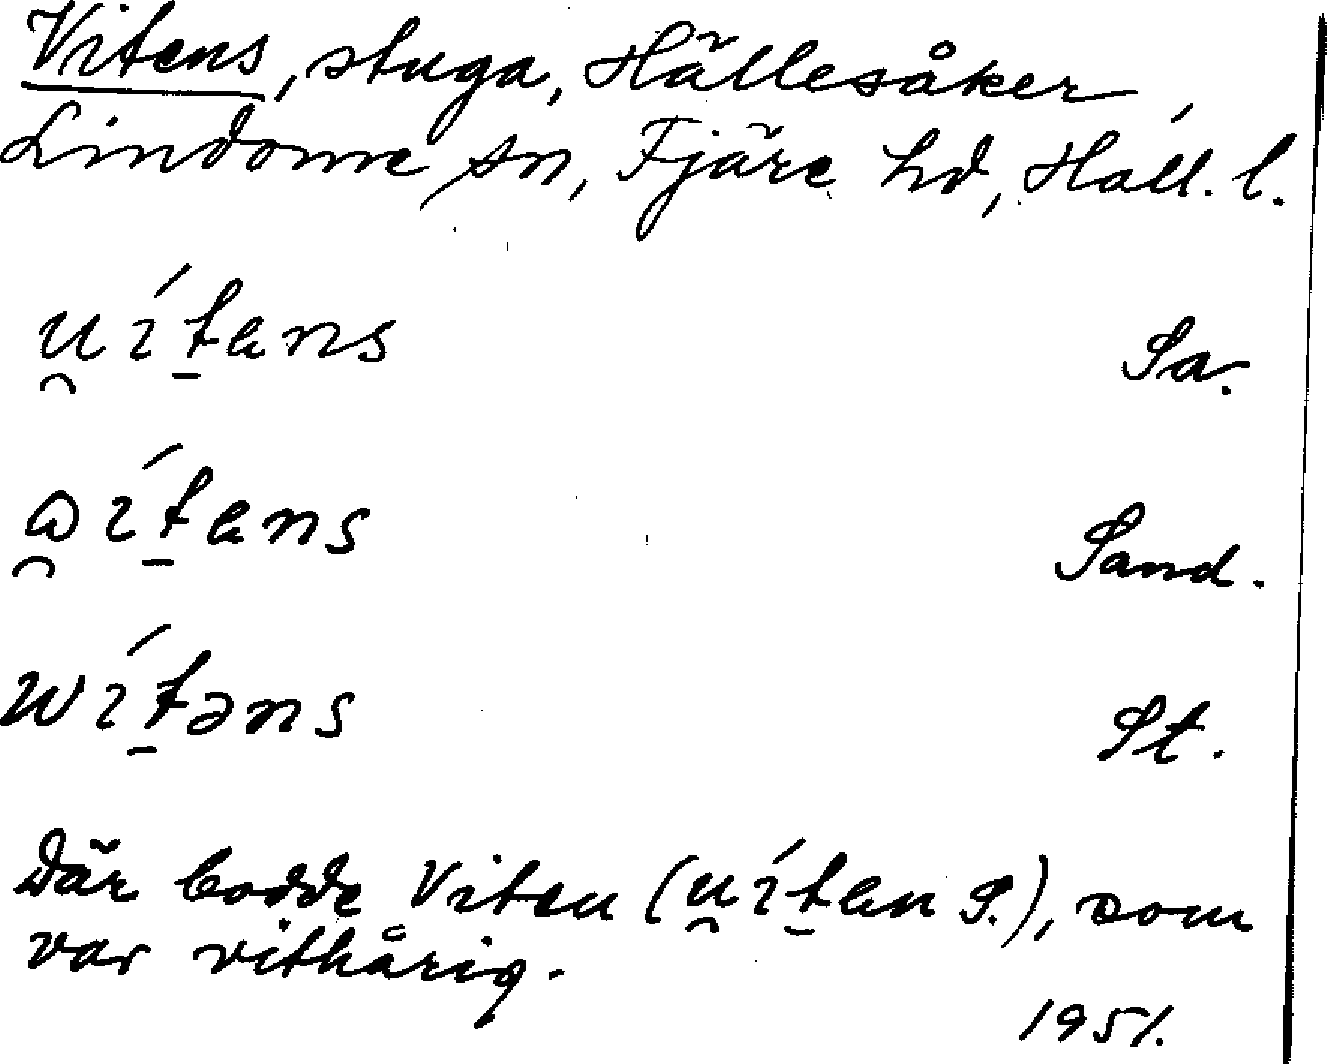 Vitens, stuga, Hällesåker,
Lindome sn, Fjäre hd, Hall. l.
u̯ít̠ens Sa.
ω̯ít̠ens Sand.
wít̠əns St.
Där bodde Viten (u̯ít̠en S.), som
var vithårig.
1951.